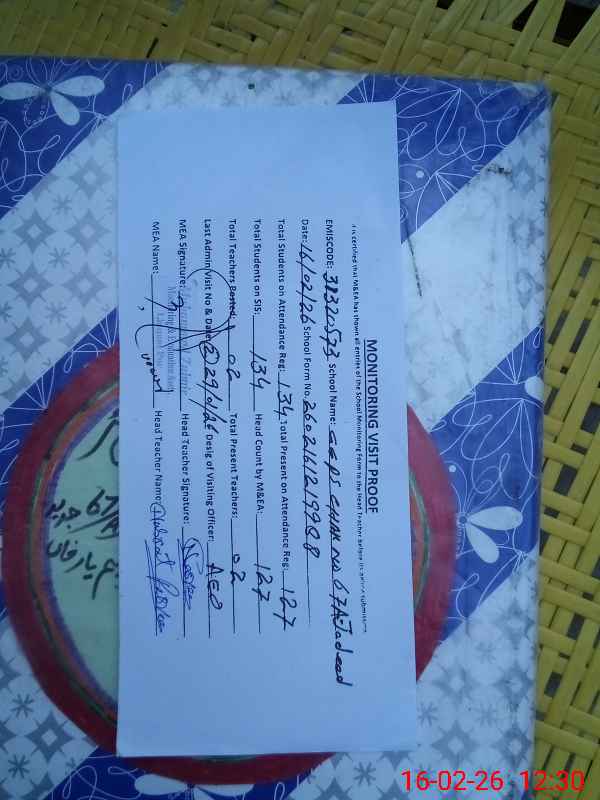 MONITORING VISIT PROOF
It is certified that M&EA has shown all entries of the School Monitoring Form to the Head Teacher before its online submission.
EMISCODE: 31320573 School Name: GGPS CHAK NO 67A-Jadeed
Date: 16/02/26 School Form No. 26021412199Q8
Total Students on Attendance Reg: 134 Total Present on Attendance Reg: 127
Total Students on SIS: 134 Head Count by M&EA: 127
Total Teachers Posted: 02 Total Present Teachers: 02
Last Admin Visit No & Date: (2) 29/01/26 Desig of Visiting Officer: AEO
MEA Signature: Head Teacher Signature:
MEA Name: Head Teacher Name:
16-02-26 12:30